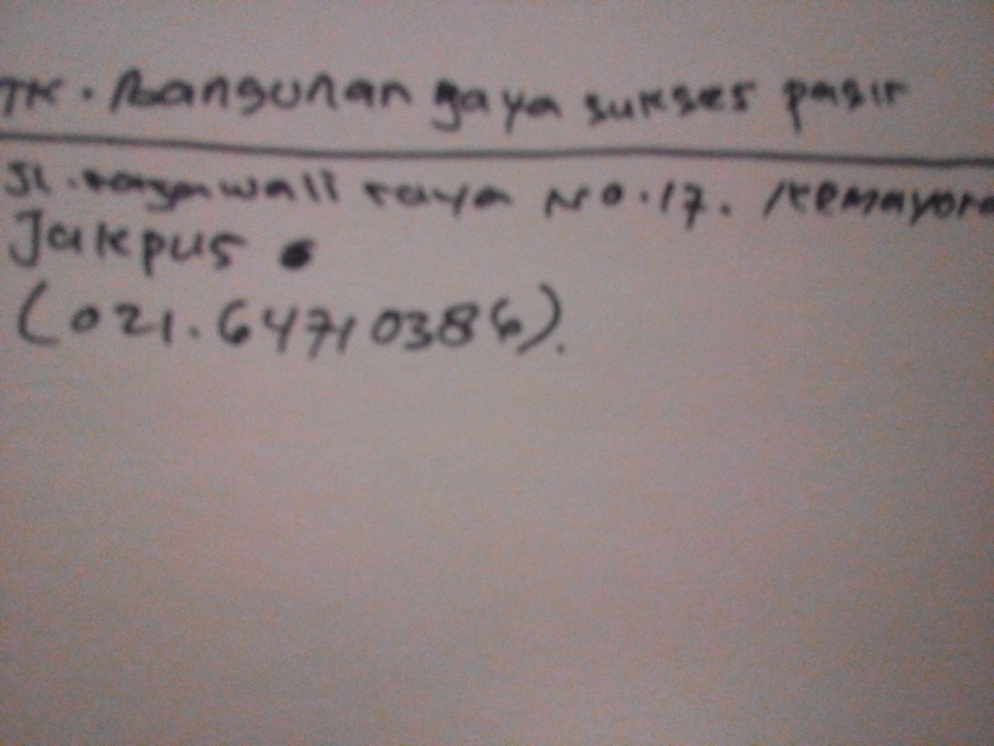 TK. bangunan gaya sukses pasir
Jl. raya No. 17. kemayora
Jakpus
(021.64710386).